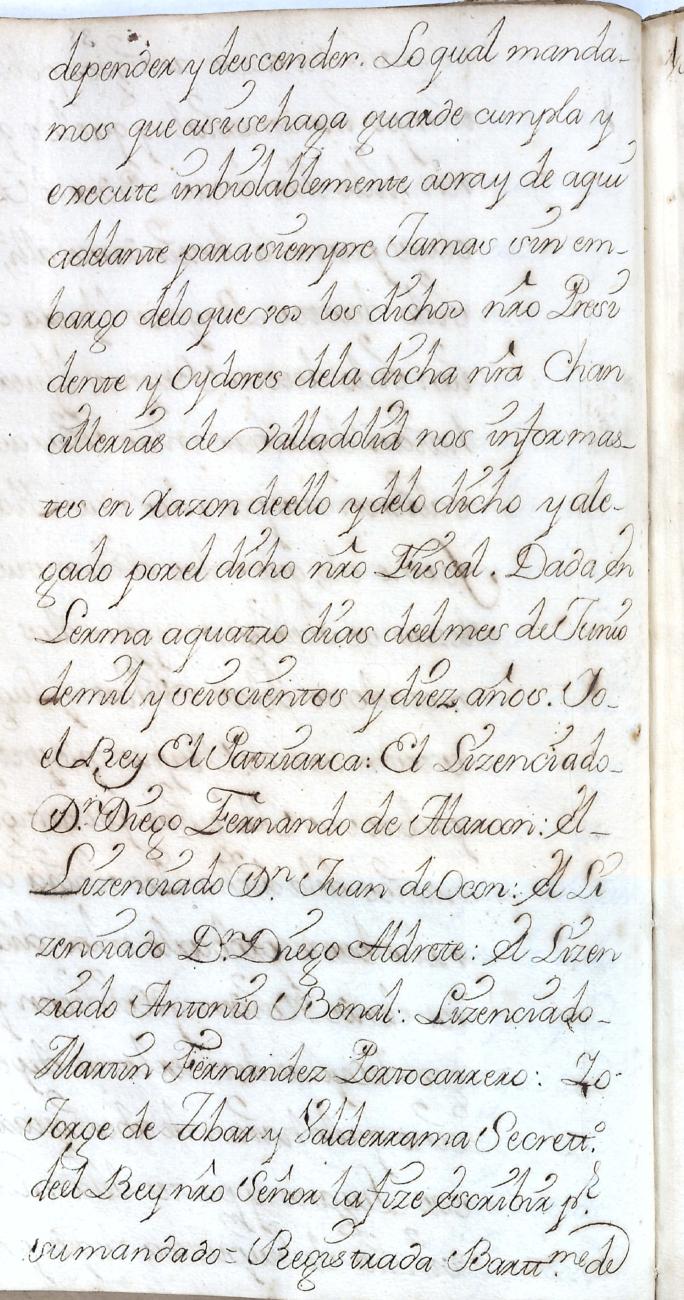 depender y descender. Lo qual manda-
mos que asisehaga guarde cumpla y
execute imbiolablemente aora y de aqui
adelante parasiempre Jamas sin em-
bargo delo que vos los dichos nr̃o Presi
dente y Oydores dela dicha nr̃a Chan
cillerias de Valladolid nos informas-
tes en Razon deello y delo dicho y ale-
gado porel dicho nr̃o Fiscal. Dada en
Lerma aquatro dias deelmes de Junio
demil y seiscientos y diez años. Yo-
el Rey El Patriarca: El Lizenciado-
Dn. Diego Fernando de Alarcon: El-
Lizenciado Dn. Juan deOcon: El Li
zenciado Dn. Diego Aldrete: El Lizen
ziado Antonio Bonal: Lizenciado-
Martin Fernandez Portocarrero: Yo-
Jorge de Tobar y Valderrama Secrett.º
deel Rey nr̃o Señor la fize escribir pr.
sumandado= Registrada Bartt.me de